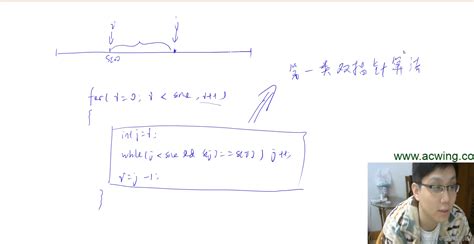 i j
s[i]
for(i=0; i < size, i++)
{
int j=i;
while(j < size && s[j]==s[i]) j++;
i=j-1;
}
第一类双指针算法
www.acwing.co